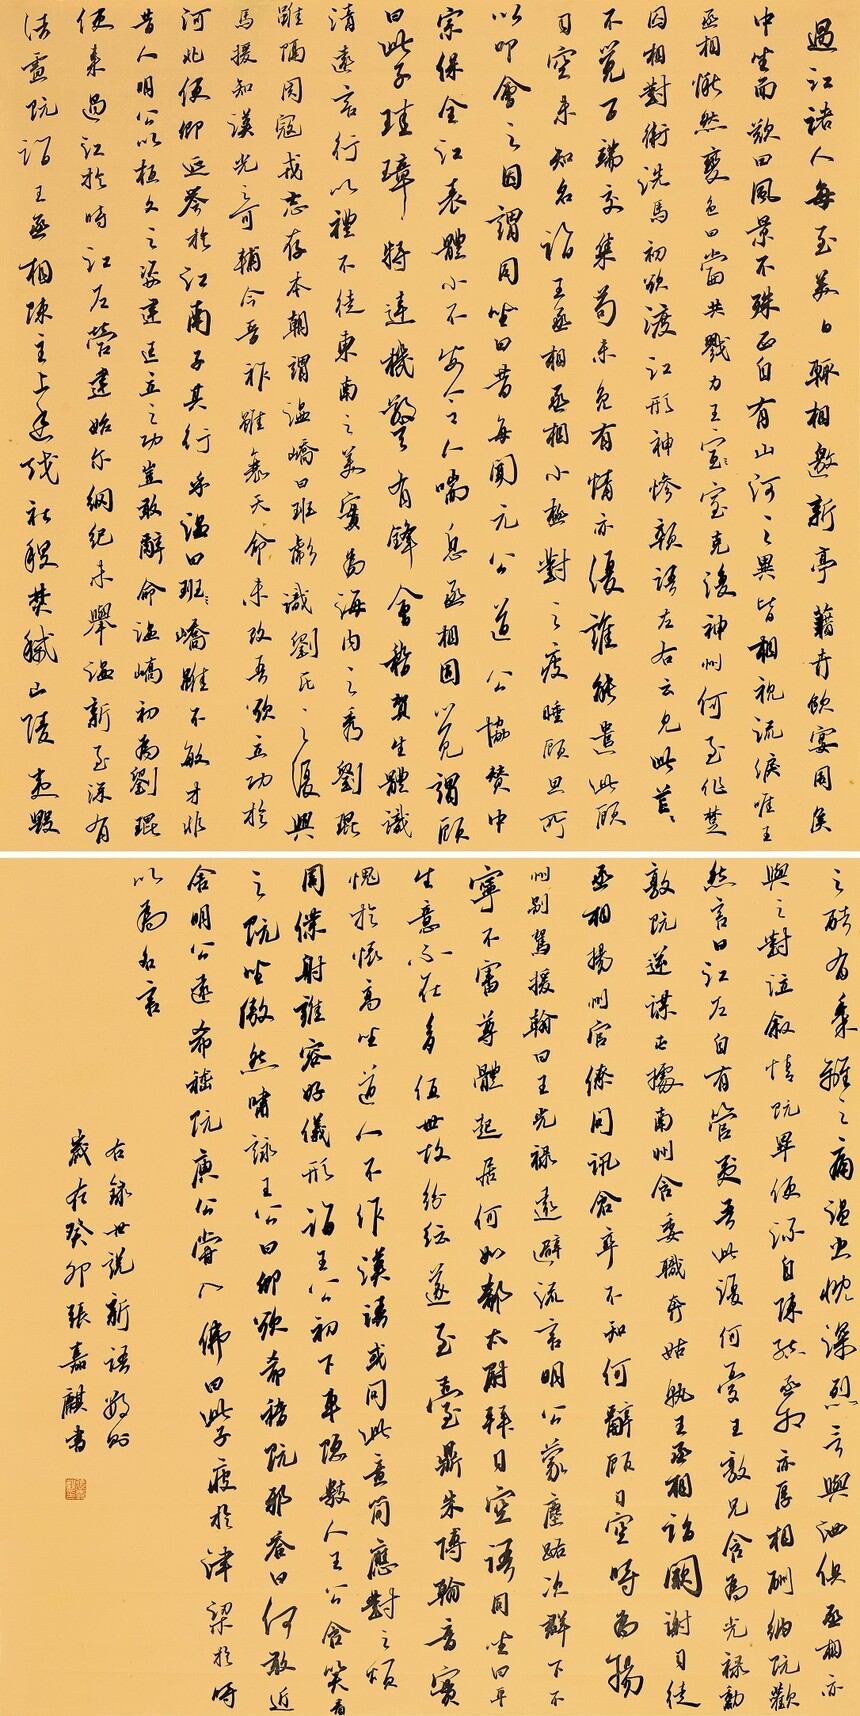 過江諸人每至美日輒相邀新亭藉卉飲宴周侯
中坐而歎曰風景不殊正自有山河之異皆相視流淚唯王
丞相愀然變色曰當共戮力王室克復神州何至作楚
囚相對衛洗馬初欲渡江形神慘顇語左右云見此芒芒
不覺百端交集苟未免有情亦復誰能遣此顧
司空未知名詣王丞相丞相小極對之疲睡顧思所
以叩會之因謂同坐曰昔每聞元公道公協贊中
宗保全江表體小不安令人喘息丞相因覺謂顧
曰此子珪璋特達機警有鋒會稽賀生體識
清遠言行以禮不徒東南之美實為海內之秀劉琨
雖隔閡寇戎志存本朝謂溫嶠曰班彪識劉氏之復興
馬援知漢光之可輔今晉祚雖衰天命未改吾欲立功於
河北使卿延譽於江南子其行乎溫曰班嶠雖不敏才非
昔人明公以桓文之姿建匡立之功豈敢辭命溫嶠初為劉琨
使來過江於時江左營建始爾綱紀未舉溫新至深有
諸慮既詣王丞相陳主上幽越社稷焚滅山陵夷毀
之酷有黍離之痛溫忠慨深烈言與泗俱丞相亦
與之對泣敘情既畢便深自陳結丞相亦厚相酬納既歡
然言曰江左自有管夷吾此復何憂王敦兄含為光祿勳
敦既逆謀屯據南州含委職奔姑孰王丞相詣闕謝司徒
丞相揚州官僚問訊倉卒不知何辭顧司空時為揚
州別駕援翰曰王光祿遠避流言明公蒙塵路次群下不
寧不審尊體起居何如郗太尉拜司空語同坐曰平
生意不在多值世故紛紜遂至臺鼎朱博翰音實
愧於懷高坐道人不作漢語或問此意簡應對之煩
周僕射雍容好儀形詣王公初下車隱數人王公含笑看
之既坐傲然嘯詠王公曰卿欲希嵇阮邪答曰何敢近
舍明公遠希嵇阮庾公嘗入佛曰此子疲於津梁於時
以為名言
右錄世說新語數則
歲在癸卯張嘉麒書